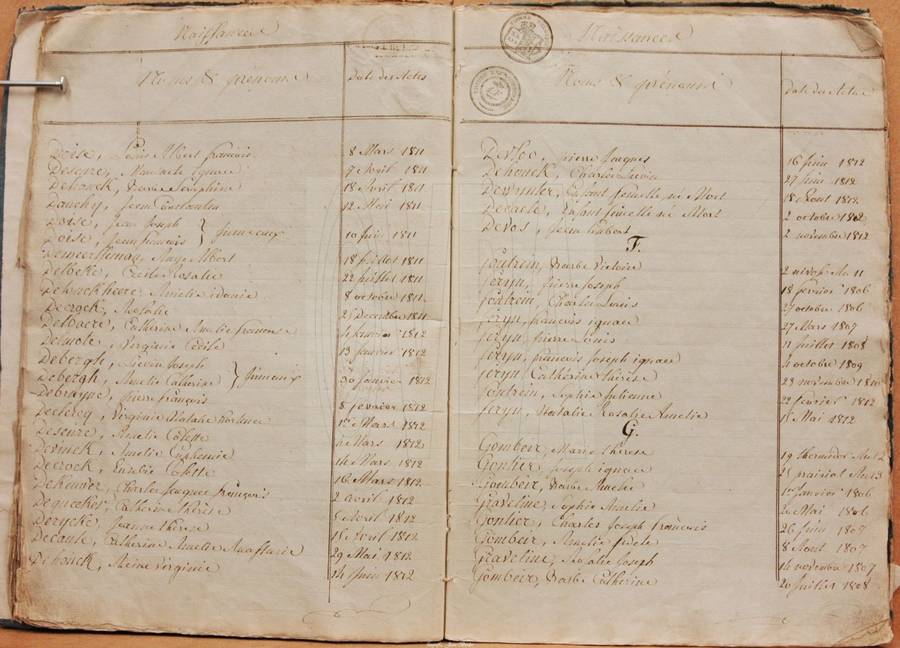 Naissances
Noms & prénoms Date des Actes
Doise, Louis Albert françois 8 Mars 1811
Desguez, ignace 7 Avril 1811
Dehonck, Marie Séraphine 18 Avril 1811
Dauchy, Jean Constantin 12 Mai 1811
Doise, Jean Joseph
Doise, Louis françois } Jumeaux 10 Juin 1811
Demeersseman, Albert 18 Juillet 1811
Delbeke, Cécile Rosalie 22 Juillet 1811
Dehaeckheere, Amelie idonie 8 octobre 1811
Decrock, Natalie 25 Decembre 1811
Debaere, Catherine Amelie françoise 4 fevrier 1812
Delmote, Virginie Cécile 13 Janvier 1812
Debergh, Livein Joseph
Debergh, Amelie Catherine } Jumeaux 30 Janvier 1812
Debruyne, Pierre françois 8 fevrier 1812
Declercq, Virginie Natalie 1er Mars 1812
Amelie Colette 11 Mars 1812
Devinck, Amelie Euphemie 14 Mars 1812
Decrock, Eurelie Colette 16 Mars 1812
Charles Jacques françois 2 avril 1812
Dequeeker, Catherine Thérèse 5 Avril 1812
Derycke, Jeanne Therese 15 Avril 1812
Catherine Amelie Anastasie 29 Mai 1812
Dehonck, Reine Virginie 14 Juin 1812
Naissances
Noms & prénoms Date des Actes
Pierre Jacques 16 Juin 1812
Dehonck, Charles Livin 27 Juin 1812
Dewinter, Enfant femelle né Mort 18 Aout 1812
Decaele, Enfant femelle né Mort 2 octobre 1812
Devos, Jean hubert 2 novembre 1812
F.
Foutrein, Barbe Victoire 2 nivose An 11
feryn, pierre Joseph 18 fevrier 1806
foutrein, Charles Louis 27 octobre 1806
feryn, françois ignace 27 Mars 1807
feryn, pierre Louis 11 Juillet 1808
feryn, françois Joseph ignace 4 octobre 1809
feryn, Catherine Thérèse 23 novembre 1810
foutrein, Sophie Julienne 22 fevrier 1812
feryn, Natalie Rosalie Amelie 15 Mai 1812
G.
Gombeir, Marie Therese 19 thermidor An 12
Gontier, Joseph ignace 25 prairial An 13
Gombeir, Barbe Amelie 1er Janvier 1806
Graveline, Sophie Amelie 2 Mai 1806
Gontier, Charles Joseph françois 26 Juin 1807
Gombeir, Amelie fidele 8 Aout 1807
Graveline, Natalie Joseph 14 novembre 1807
Gombeir, Barbe Catherine 20 Juillet 1808